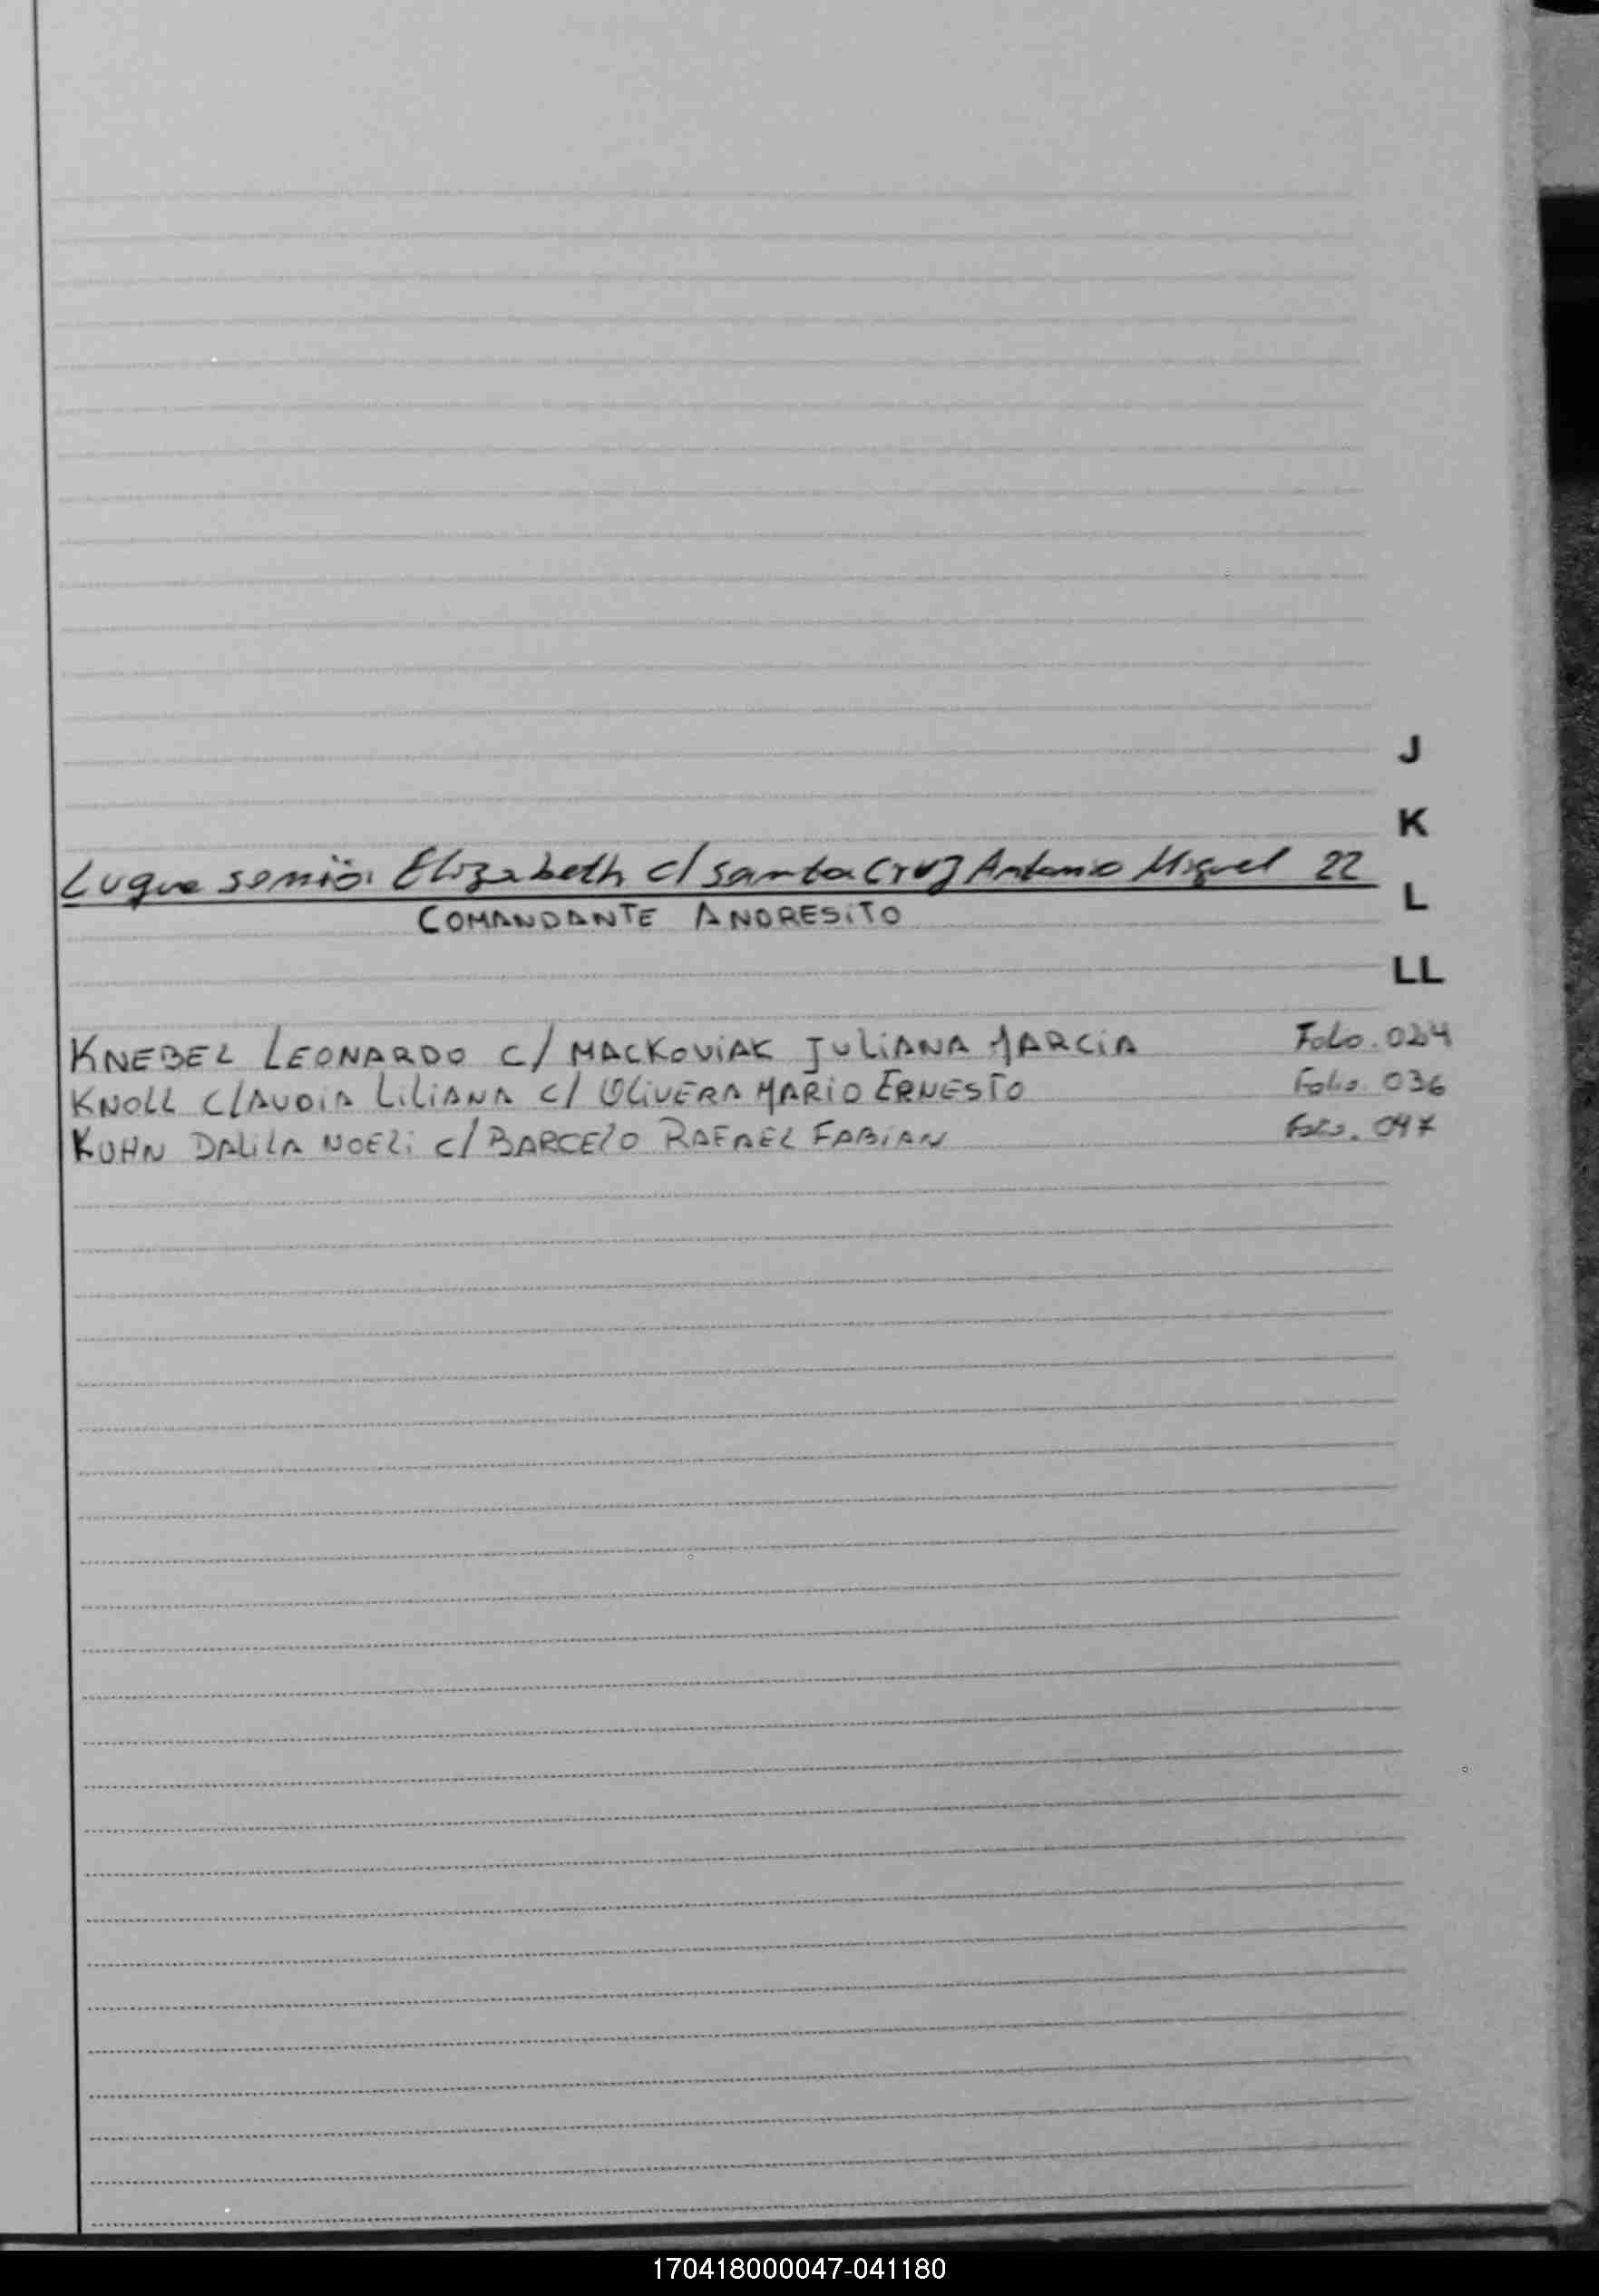 J
K
Luque sonia Elizabeth c/ santa Cruz Antonio Miguel 22
L
COMANDANTE ANDRESiTO
LL
KNEBEL LEONARDO c/ MACKOViAK JULiANA MARCiA Folio. 024
KNOLL ClAUDiA LiLiANA c/ OLiVERA MARiO ERNESTO Folio. 036
KUHN DALiLA NOELi c/ BARCElO RAFAEL FABiAN Folio. 047
170418000047-041180